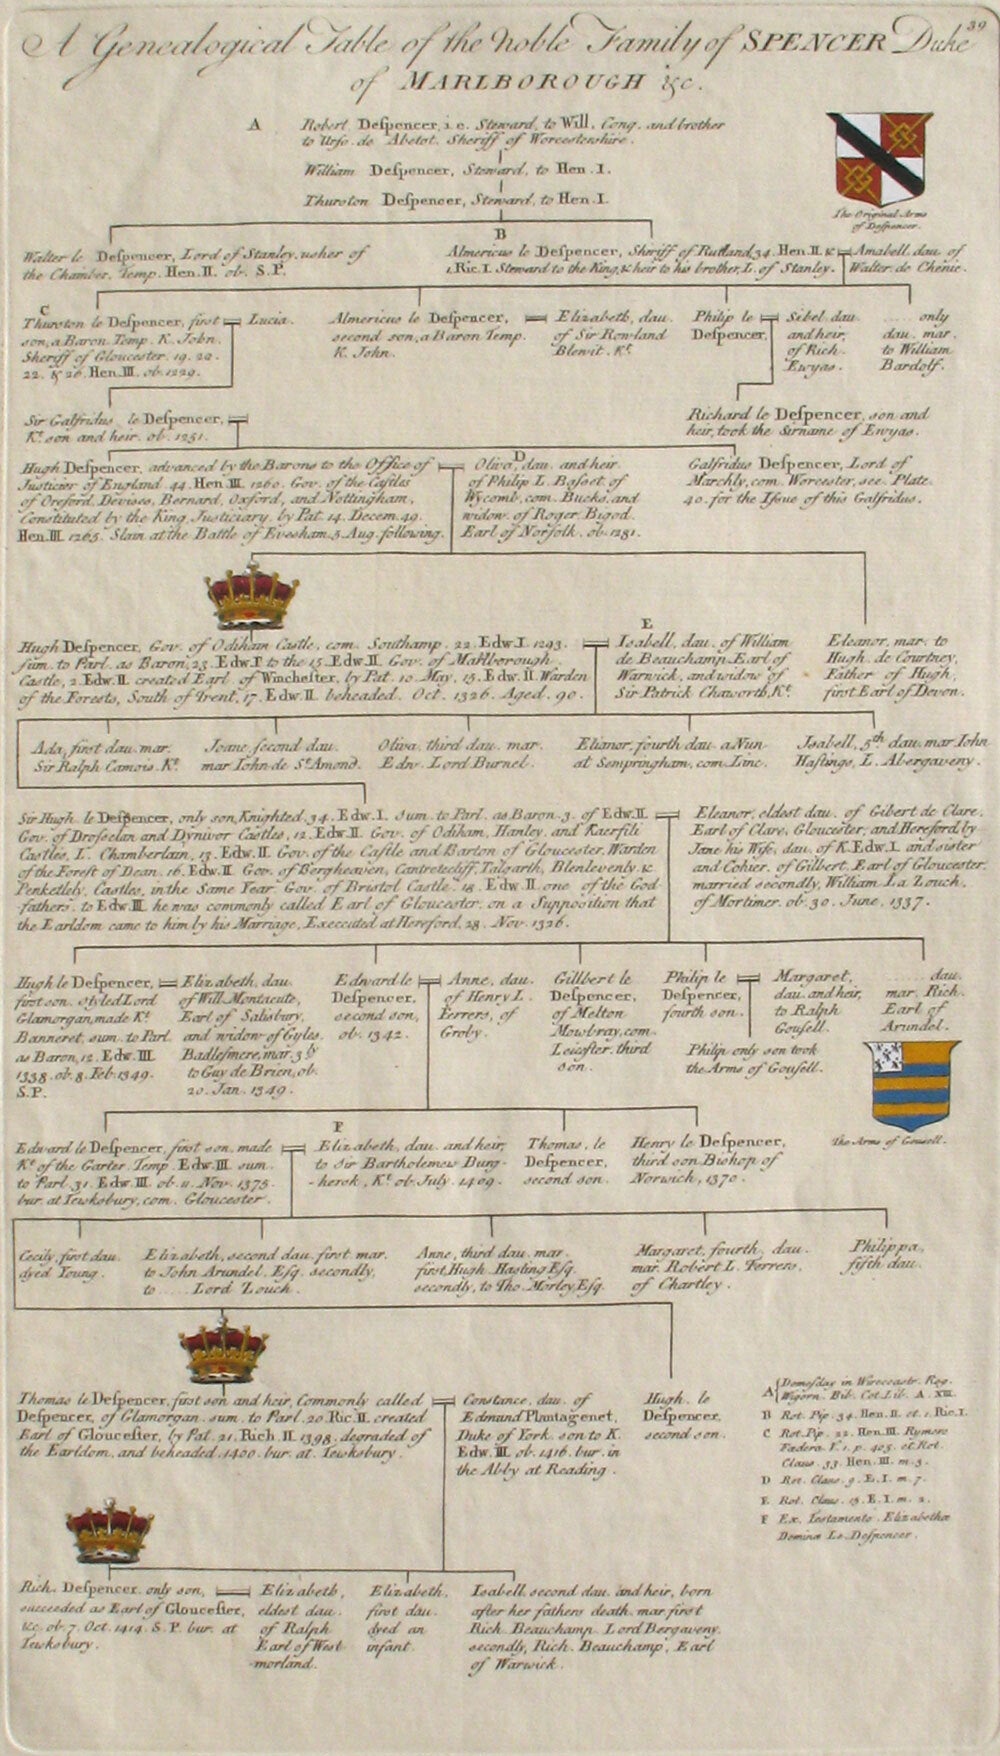 39
A Genealogical Table of the Noble Family of SPENCER Duke
of MARLBOROUGH &c.
A Robert Deſpencer, i.e. Steward, to Will. Conq. and brother
to Urſo de Abetot. Sheriff of Worcestershire.
William Deſpencer, Steward, to Hen. I.
Thurston Deſpencer, Steward, to Hen. I.
The Original Arms
of Deſpencer.
Walter le Deſpencer, Lord of Stanley, usher of
the Chamber, Temp. Hen. II. ob. S.P.
B
Almericus le Deſpencer, Sheriff of Rutland, 34. Hen. II. &
1. Ric. I. Steward to the King, & heir to his brother, L. of Stanley.
Amabell, dau. of
Walter de Chenie.
C
Thurston le Deſpencer, first
son, a Baron Temp. K. John.
Sheriff of Gloucester. 19. 20.
22. & 26. Hen. III. ob. 1229.
Lucia.
Almericus le Deſpencer,
second son, a Baron Temp.
K. John.
Elizabeth, dau.
of Sir Rowland
Blewit. Kt.
Philip le
Deſpencer,
Sibel dau.
and heir,
of Rich.
Ewyas.
..... only
dau. mar.
to William
Bardolf.
Sir Galfridus le Deſpencer,
Kt. son and heir. ob. 1251.
Richard le Deſpencer, son and
heir, took the Sirname of Ewyas.
Hugh Deſpencer, advanced by the Barons to the Office of
Justicier of England 44. Hen. III. 1260. Gov. of the Caſtles
of Oreford, Devises, Bernard, Oxford, and Nottingham,
Constituted by the King, Justiciary, by Pat. 14. Decem. 49.
Hen. III. 1265. Slain at the Battle of Evesham, 5. Aug. following.
D
Oliva, dau. and heir.
of Philip L. Baſset of
Wycomb, com. Bucks, and
widow of Roger Bigod.
Earl of Norfolk. ob. 1281.
Galfridus Deſpencer, Lord of
Marchly, com. Worcester, see Plate
40. for the Iſsue of this Galfridus.
Hugh Deſpencer, Gov. of Odiham Castle, com. Southamp. 22. Edw. I. 1293.
sum. to Parl. as Baron, 23. Edw. I. to the 15. Edw. II. Gov. of Marlborough
Castle, 2. Edw. II. created Earl of Wincheſter, by Pat. 10. May, 15. Edw. II. Warden
of the Forests, South of Trent, 17. Edw. II. beheaded. Oct. 1326. Aged. 90.
E
Isabell, dau. of William
de Beauchamp Earl of
Warwick, and widow of
Sir Patrick Chaworth, Kt.
Eleanor, mar. to
Hugh. de Courtney,
Father of Hugh,
first Earl of Devon.
Ada, first dau. mar.
Sir Ralph Camois. Kt.
Joane, second dau.
mar. Iohn de St. Amond.
Oliva, third dau. mar.
Edw. Lord Burnel.
Elianor, fourth dau. a Nun
at Sempringham, com. Linc.
Isabell, 5th dau. mar. Iohn
Haſtings, L. Abergaveny.
Sir Hugh le Deſpencer, only son, Knighted. 34. Edw. I. Sum. to Parl. as Baron. 3. of Edw. II.
Gov. of Droſselan and Dynivor Castles, 12. Edw. II. Gov. of Odiham, Hanley, and Kaerfili
Castles, L. Chamberlain, 13. Edw. II. Gov. of the Caſtle and Barton of Gloucester, Warden
of the Foreſt of Dean. 16. Edw. II. Gov. of Bergheaven, Cantretcliff, Talgarth, Blenlevenly &
Penketlely, Castles, in the Same Year. Gov. of Bristol Castle. 18. Edw. II. one of the God-
fathers. to Edw. III. he was commonly called Earl of Gloucester. on a Supposition that
the Earldom came to him by his Marriage, Executed at Hereford, 28. Nov. 1326.
Eleanor, eldest dau. of Gibert de Clare,
Earl of Clare, Gloucester, and Hereford, by
Jane his Wife, dau. of K. Edw. I. and sister
and Cohier. of Gilbert. Earl of Gloucester,
married secondly, William La Zouch.
of Mortimer. ob. 30. June. 1337.
Hugh le Deſpencer,
first son. styled Lord
Glamorgan, made Kt.
Banneret, sum. to Parl.
as Baron, 12. Edw. III.
1338. ob. 8. Feb. 1349.
S.P.
Elizabeth, dau.
of Will. Montacute,
Earl of Salisbury,
and widow of Gyles.
Badleſmere, mar. 3.ly
to Guy de Brien, ob.
20. Jan. 1349.
Edward le
Deſpencer,
second son,
ob. 1342.
Anne, dau.
of Henry L.
Ferrers, of
Groby.
Gillbert le
Deſpencer,
of Melton
Mowbray, com.
Leicester. third
son.
Philip le
Deſpencer,
fourth son.
Margaret,
dau. and heir,
to Ralph
Gousell.
Philip only son took
the Arms of Gousell.
........ dau.
mar. Rich.
Earl of
Arundel.
The Arms of Gousell.
Edward le Deſpencer, first son. made
Kt. of the Garter Temp. Edw. III. sum.
to Parl. 31. Edw. III. ob. 11. Nov. 1375.
bur. at Tewksbury, com. Gloucester.
F
Elizabeth, dau. and heir,
to Sir Bartholemew Burg-
-herok, Kt. ob. July. 1409.
Thomas, le
Deſpencer,
second son.
Henry le Deſpencer,
third son. Bishop of
Norwich, 1370.
Cecily, first dau.
dyed Young.
Elizabeth, second dau. first mar.
to John Arundel. Esq. secondly,
to ..... Lord Louch.
Anne, third dau. mar.
first, Hugh Hasting Esq.
secondly, to Tho. Morley, Esq.
Margaret, fourth, dau.
mar. Robert L. Ferrers,
of Chartley.
Philippa,
fifth dau.
Thomas le Deſpencer, first son and heir, Commonly called
Deſpencer, of Glamorgan. sum. to Parl. 20. Ric. II. created
Earl of Glouceſter, by Pat. 21. Rich. II. 1398. degraded of
the Earldom, and beheaded. 1400. bur. at Tewksbury.
Constance, dau. of
Edmund Plantagenet,
Duke of York. son to K.
Edw. III. ob. 1416. bur. in
the Abby at Reading.
Hugh. le
Deſpencer,
second son.
A Domesday in Wirecestr. Reg.
Wigorn. Bib. Cot. Lib. A. XIII.
B Rot. Pip. 34. Hen. II. et. 1. Ric. I.
C Rot. Pip. 22. Hen. III. Rymers
Fædera V. 1. p. 405. et. Rot.
Claus. 33. Hen. III. m. 3.
D Rot. Claus. 9. E. I. m. 7.
E Rot. Claus. 15. E. I. m. 2.
F Ex. Testamento. Elizabethæ
Dominæ Le. Deſpencer.
Rich. Deſpencer. only son,
succeeded as Earl of Glouceſter,
&c. ob. 7. Oct. 1414. S.P. bur. at
Tewksbury.
Elizabeth,
eldest dau.
of Ralph
Earl of West
-morland.
Elizabeth,
first dau.
dyed an
infant.
Isabell, second dau. and heir, born
after her fathers death. mar. first
Rich. Beauchamp. Lord Bergaveny.
secondly, Rich. Beauchamp, Earl
of Warwick.